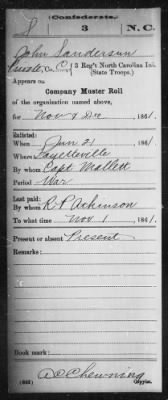 (Confederate.)
S 3 N.C.
John Sanderson
Private, Co. C, 3 Reg't North Carolina Inf.
(State Troops.)
Appears on
Company Muster Roll
of the organization named above,
for Nov & Dec, 1861.
Enlisted:
When Jun 21, 1861.
Where Fayetteville
By whom Capt Mallett
Period War
Last paid:
By whom R P Atkinson
To what time Nov 1, 1861.
Present or absent Present
Remarks:
Book mark:
(642) A C Chewning
Copyist.